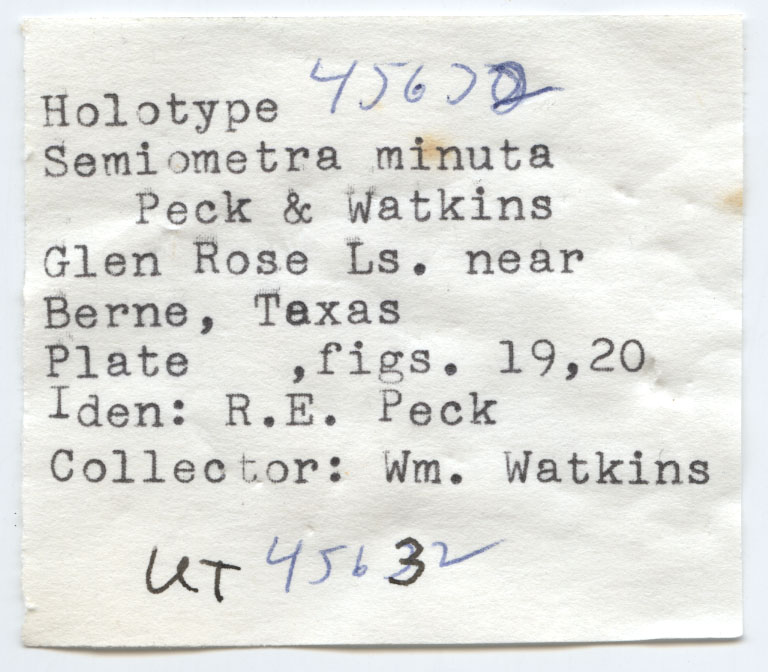 Holotype
Semiometra minuta
Peck & Watkins
Glen Rose Ls. near
Berne, Texas
Plate ,figs. 19,20
Iden: R.E. Peck
Collector: Wm. Watkins
UT 45632